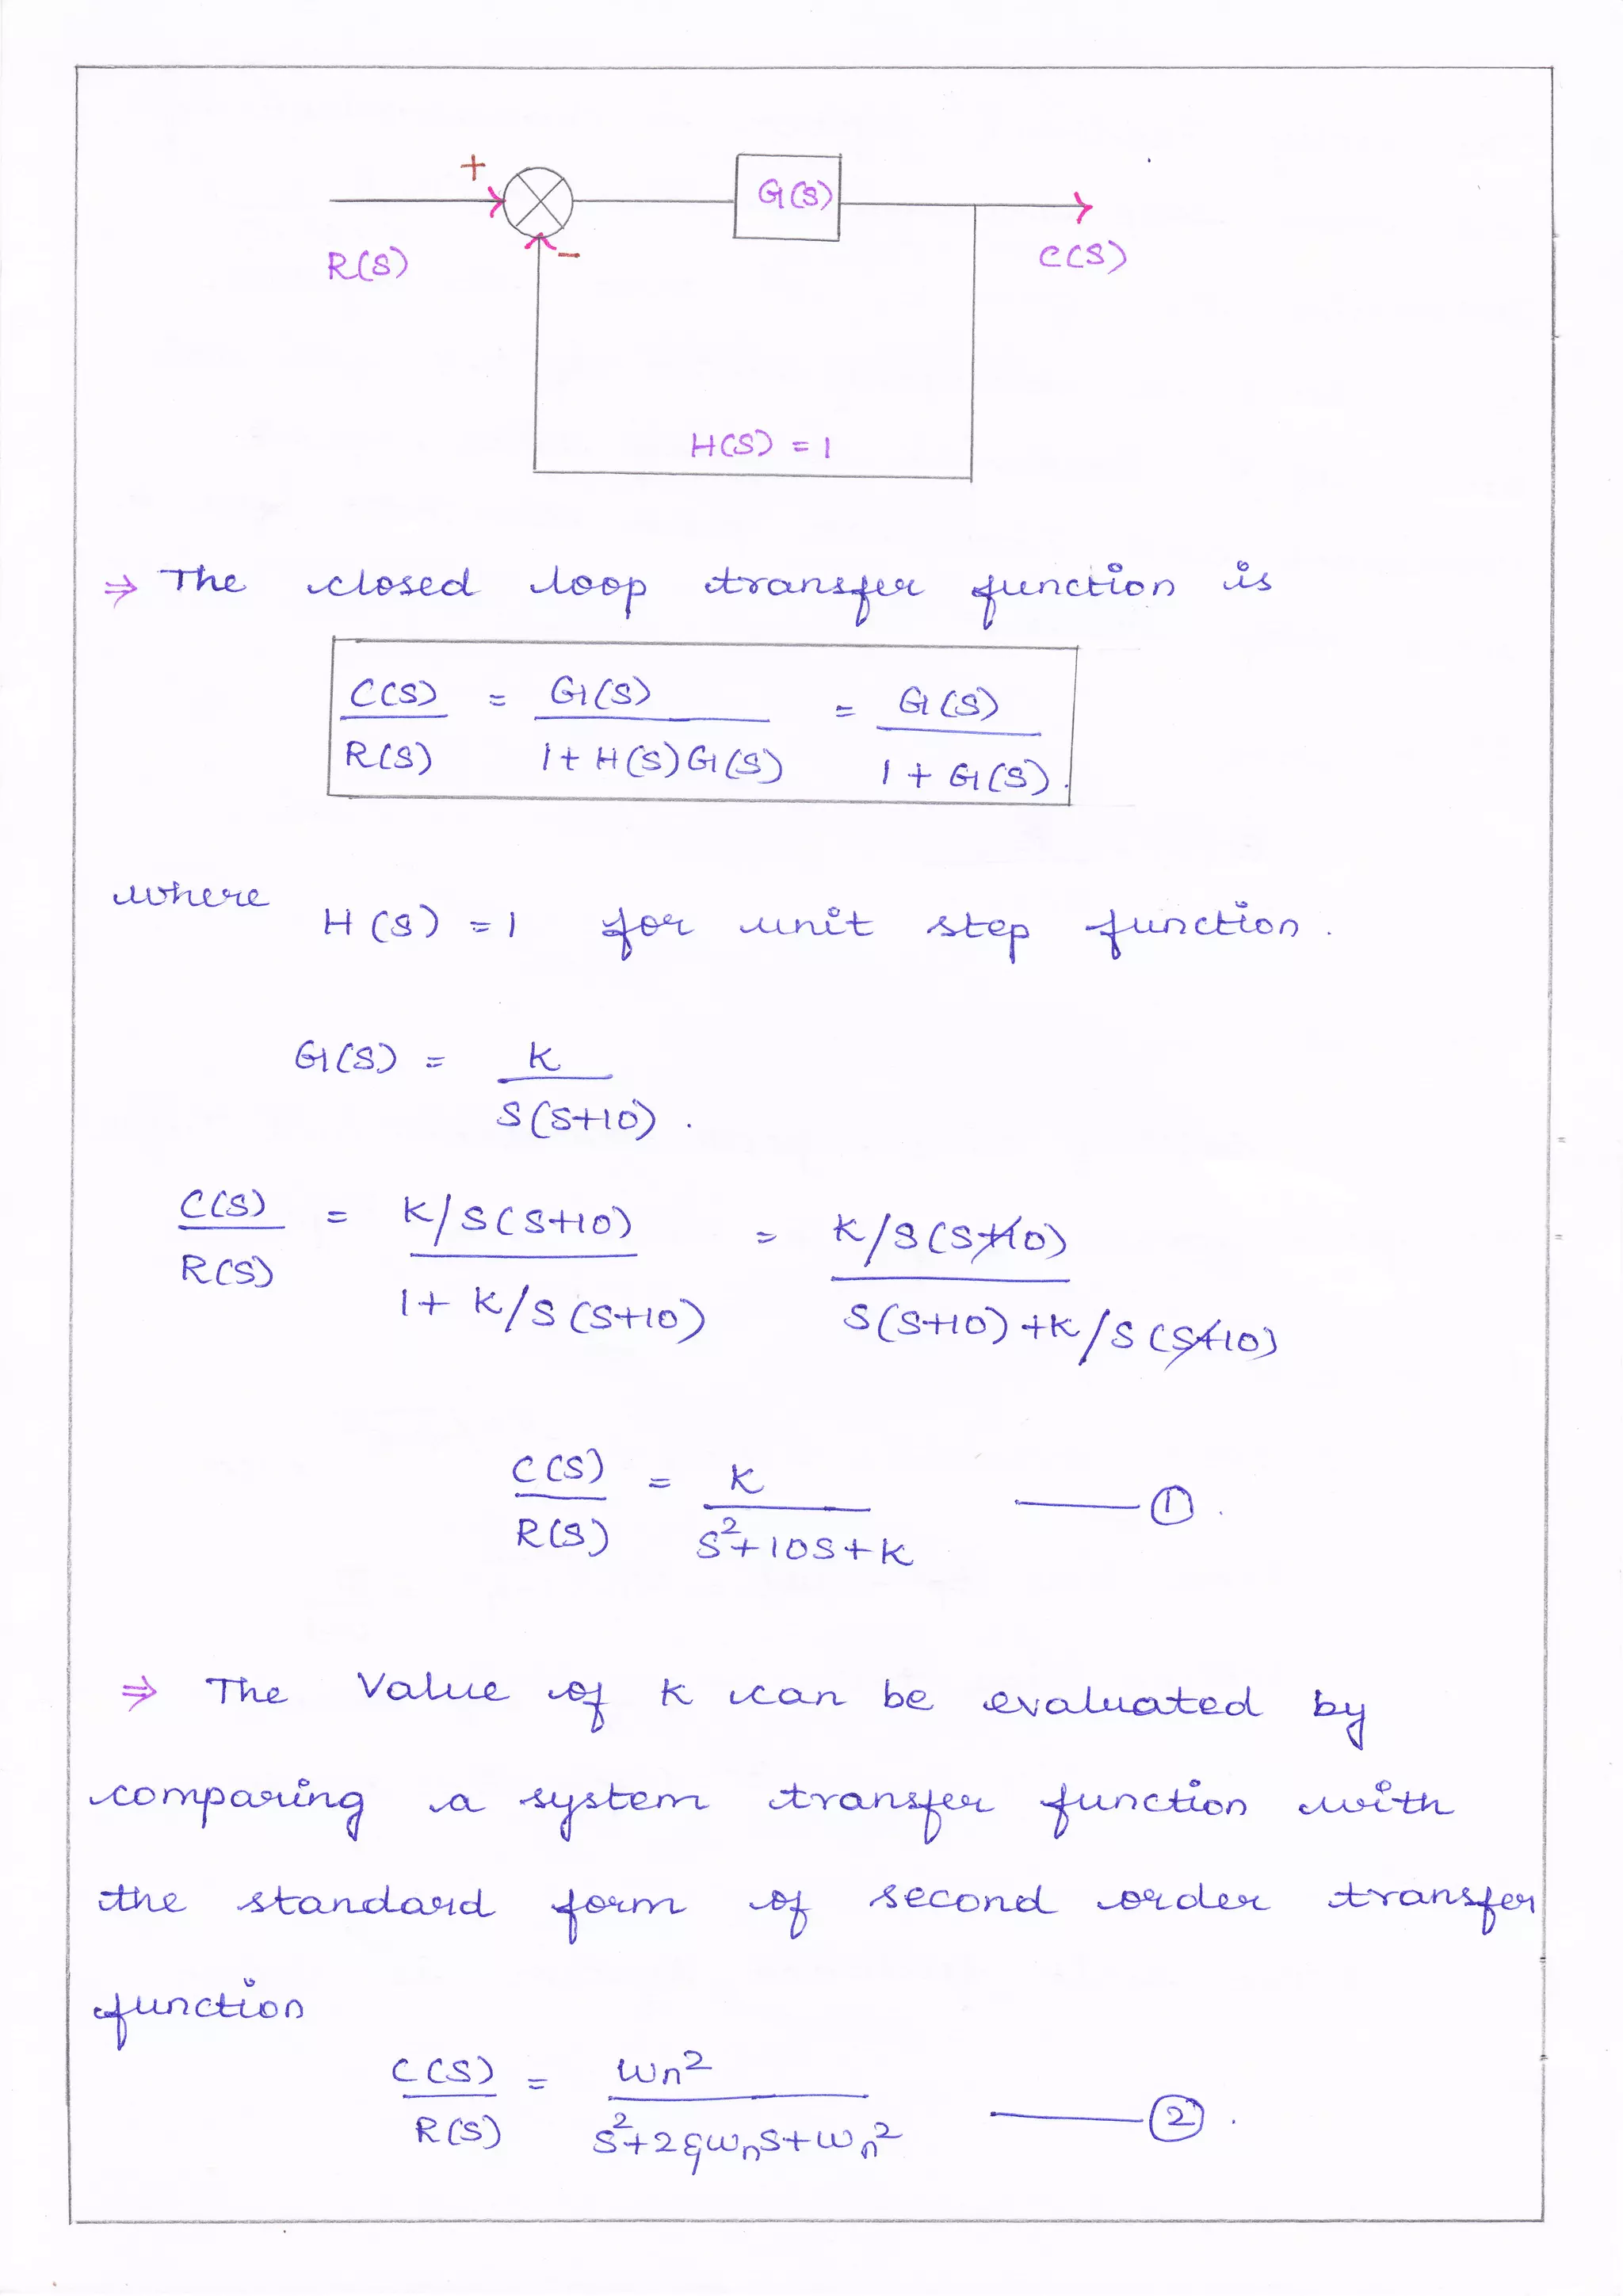 +
G(S)
R(S) - C(S)
H(S) = 1
⇒ The closed loop transfer function is
C(S)/R(S) = G(S)/1+H(S)G(S) = G(S)/1+G(S).
where H(S) = 1 for unit step function.
G(S) = K/S(S+10).
C(S)/R(S) = K/S(S+10) / 1+K/S(S+10) = K/S(S+10) / S(S+10)+K/S(S+10)
C(S)/R(S) = K/S²+10S+K —— ①.
⇒ The Value of K can be evaluated by
comparing a system transfer function with
the standard form of second order transfer
function
C(S)/R(S) = ωn²/S²+2ξωnS+ωn² —— ②.